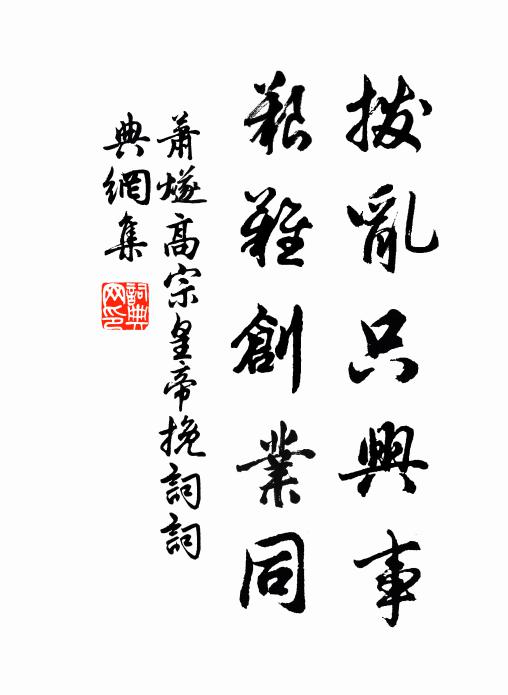 撥亂只興事
艱難創業同
蕭燧高宗皇帝挽詞詞
典網集
詞典
网印